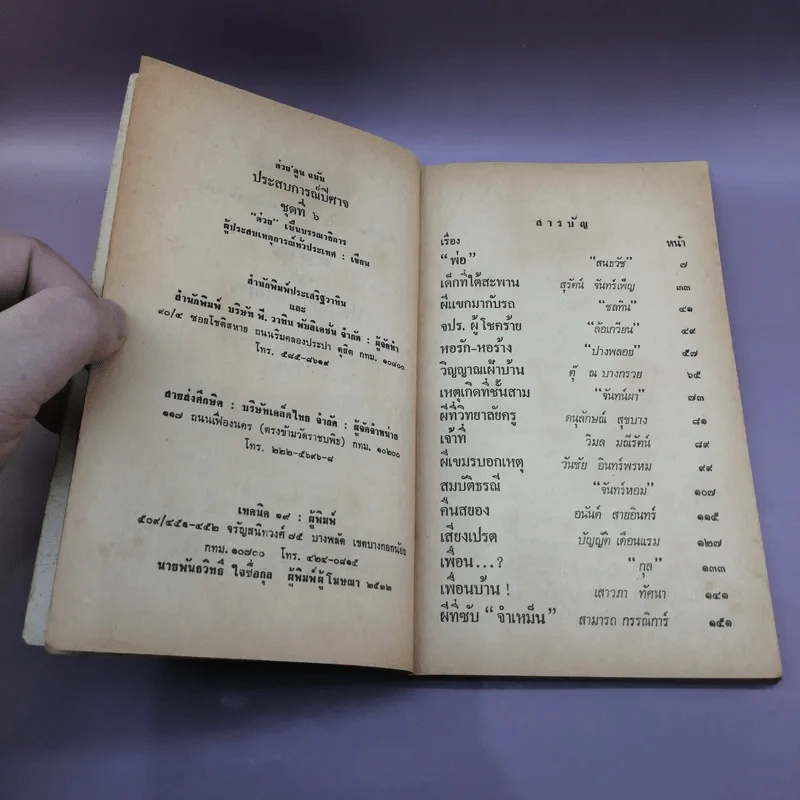 ต่วย'ตูน ฉบับ
ประสบการณ์ปีศาจ
ชุดที่ ๖
"ต่วย" เป็นบรรณาธิการ
ผู้ประสบเหตุการณ์ทั่วประเทศ : เขียน
สำนักพิมพ์ประเสริฐวาทิน
และ
สำนักพิมพ์ บริษัท พี. วาทิน พับลิเคชั่น จำกัด : ผู้จัดทำ
๙๐/๔ ซอยโชติสหาย ถนนริมคลองประปา ดุสิต กทม. ๑๐๘๐๐
โทร. ๕๘๕-๘๖๑๙
สายส่งศึกษิต : บริษัทเคล็ดไทย จำกัด : ผู้จัดจำหน่าย
๑๑๗ ถนนเฟื่องนคร (ตรงข้ามวัดราชบพิธ) กทม. ๑๐๒๐๐
โทร. ๒๒๒-๕๖๙๖-๘
เทคนิค ๑๙ : ผู้พิมพ์
๕๐๙/๔๕๑-๔๕๒ จรัญสนิทวงศ์ ๗๕ บางพลัด เขตบางกอกน้อย
กทม. ๑๐๗๐๐ โทร. ๔๒๔-๐๘๑๕
นายพันธวิทธิ์ ใจซื่อกุล ผู้พิมพ์ผู้โฆษณา ๒๕๓๒
สารบัญ
เรื่อง หน้า
"พ่อ" "สนธวัช" ๗
เด็กที่ใต้สะพาน สุรัตน์ จันทร์เพ็ญ ๓๓
ผีแขกมากับรถ "ชลทิน" ๔๑
จปร. ผู้โชคร้าย "ล้อเกวียน" ๔๙
หอรัก-หอร้าง "ปางพลอย" ๕๗
วิญญาณเฝ้าบ้าน ตุ๊ ณ บางกรวย ๖๕
เหตุเกิดที่ชั้นสาม "จันทน์ผา" ๗๓
ผีที่วิทยาลัยครู ดนุลักษณ์ สุขบาง ๘๑
เจ้าที่ วิมล มณีรัตน์ ๘๙
ผีเขมรบอกเหตุ วันชัย อินทร์พรหม ๙๙
สมบัติธรณี "จันทร์หอม" ๑๐๗
คืนสยอง อนันต์ สายอินทร์ ๑๑๕
เสียงเปรต บัญญัติ เดือนแรม ๑๒๗
เพื่อน...? "กุล" ๑๓๓
เพื่อนบ้าน ! เสาวภา ทัศนา ๑๔๑
ผีที่ซับ "จำเหม็น" สามารถ กรรณิการ์ ๑๕๑